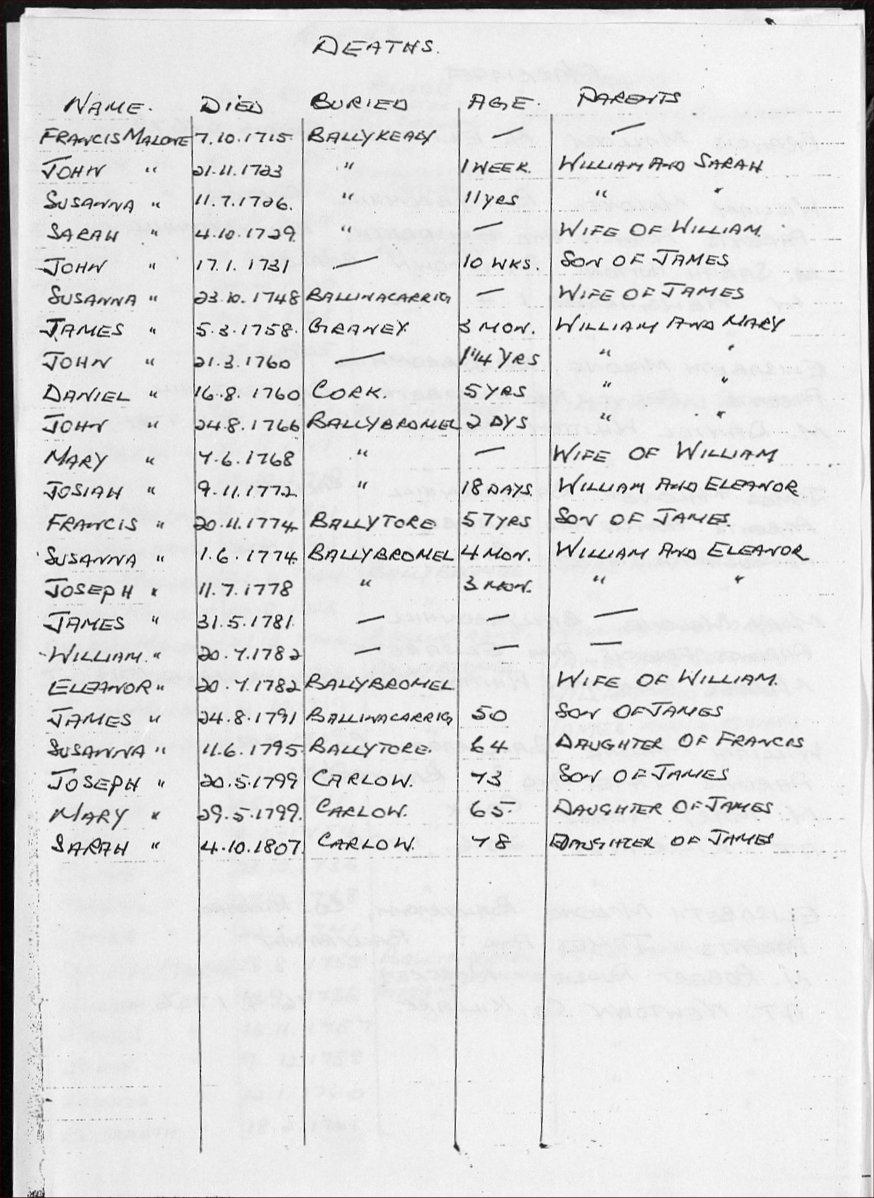 DEATHS.
NAME. DIED BURIED AGE. PARENTS
FRANCIS MALONE 7.10.1715 BALLYKEALY — —
JOHN " 21.11.1723 " 1 WEEK. WILLIAM AND SARAH
SUSANNA " 11.7.1726. " 11 YRS " "
SARAH " 4.10.1729. " — WIFE OF WILLIAM.
JOHN " 17.1.1731 — 10 WKS. SON OF JAMES
SUSANNA " 23.10.1748 BALLINACARRIG — WIFE OF JAMES
JAMES " 5.3.1758. GRANEY 3 MON. WILLIAM AND MARY
JOHN " 21.3.1760 — 1 1/4 YRS " "
DANIEL " 16.8.1760 CORK. 5 YRS " "
JOHN " 24.8.1766 BALLYBROMEL 2 DYS " "
MARY " 7.6.1768 " — WIFE OF WILLIAM
JOSIAH " 9.11.1772 " 18 DAYS. WILLIAM AND ELEANOR
FRANCIS " 20.11.1774. BALLYTORE 57 YRS SON OF JAMES
SUSANNA " 1.6.1774. BALLYBROMEL 4 MON. WILLIAM AND ELEANOR
JOSEPH " 11.7.1778 " 3 MON. " "
JAMES " 31.5.1781. — — —
WILLIAM. " 20.7.1782 — — —
ELEANOR " 20.7.1782 BALLYBROMEL WIFE OF WILLIAM.
JAMES " 24.8.1791 BALLINACARRIG 50 SON OF JAMES
SUSANNA " 11.6.1795 BALLYTORE. 64 DAUGHTER OF FRANCIS
JOSEPH " 20.5.1799 CARLOW. 73 SON OF JAMES
MARY " 29.5.1799. CARLOW. 65 DAUGHTER OF JAMES
SARAH " 4.10.1807. CARLOW. 78 DAUGHTER OF JAMES